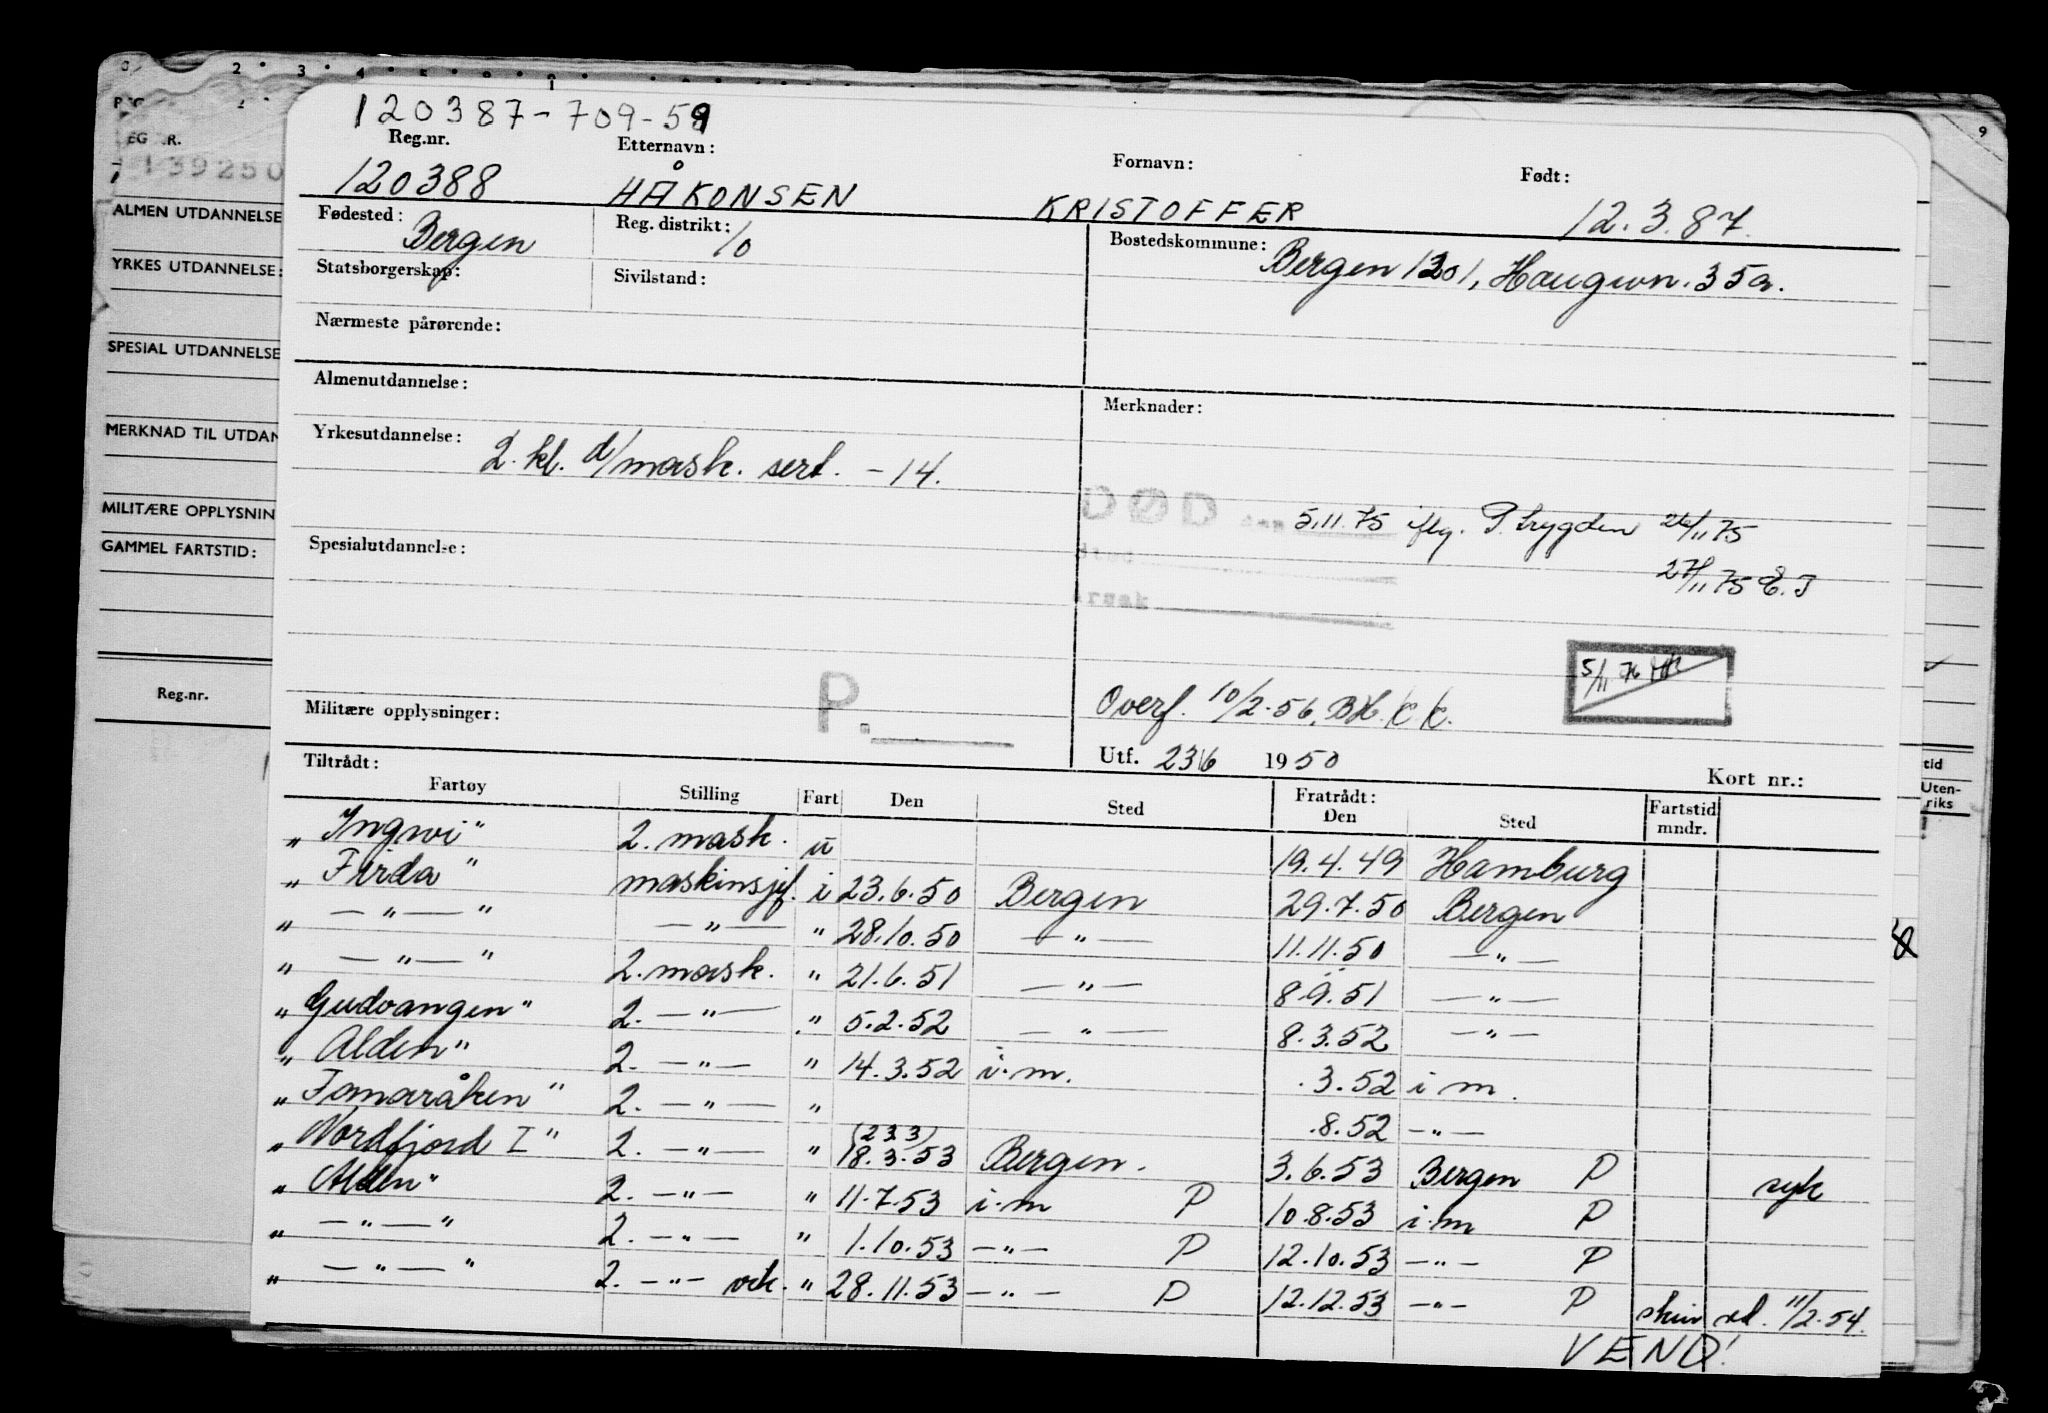 120387-709-59
Reg.nr. Etternavn: Fornavn: Født:
120388 HÅKONSEN KRISTOFFER 12.3.87.
Fødested: Bergen Reg. distrikt: 10 Bostedskommune: Bergen 1301, Haugevn. 35a.
Statsborgerskap: Sivilstand:
Nærmeste pårørende:
Almenutdannelse: Merknader:
Yrkesutdannelse: 2. kl. d/mask. sert. -14.
DØD den 5.11.75 iflg. P. trygden 26/11 75
27/11 75 E.J
sted
årsak
Spesialutdannelse:
5/11 76
P.
Militære opplysninger: Overf. 10/2-56, B.H.K.K.
Utf. 23/6 1950 Kort nr.:
Tiltrådt: Fratrådt:
Fartøy Stilling Fart Den Sted Den Sted Fartstid mndr.
„Ingwi" 2. mask. u 19.4.49 Hamburg
„Firda" maskinsjef. i 23.6.50 Bergen 29.7.50 Bergen
„ — " — " — " — " 28.10.50 — " — 11.11.50 — " —
„ — " — " 2. mask. " 21.6.51 — " — 8.9.51 — " —
„Gudvangen" 2. — " — " 5.2.52 — " — 8.3.52 — " —
„Alden" 2. — " — " 14.3.52 i.m. .3.52 i m.
„Fanaråken" 2. — " — " .8.52 — " —
„Nordfjord I" 2. — " — " (23.3) 18.3.53 Bergen. 3.6.53 Bergen P syk
„Alden" 2. — " — " 11.7.53 i.m P 10.8.53 i.m P
„ — " — " 2. — " — " 1.10.53 — " — P 12.10.53 — " — P
„ — " — " 2. — " — vik. " 28.11.53 — " — P 12.12.53 — " — P skriv ed. 11/2-54.
VEND!
REG NR.
139250
ALMEN UTDANNELSE
YRKES UTDANNELSE:
SPESIAL UTDANNELSE
MERKNAD TIL UTDAN
MILITÆRE OPPLYSNIN
GAMMEL FARTSTID:
Reg.nr.
tid
Uten-
riks
9